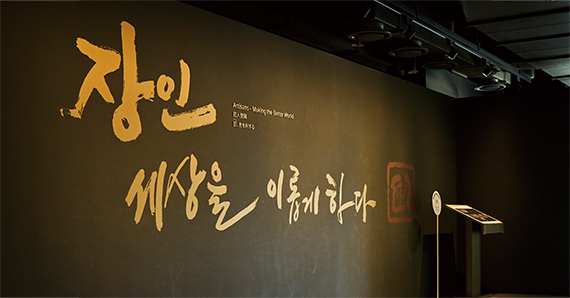 장인
Artisans - Making the Better World
세상을 이롭게 하다